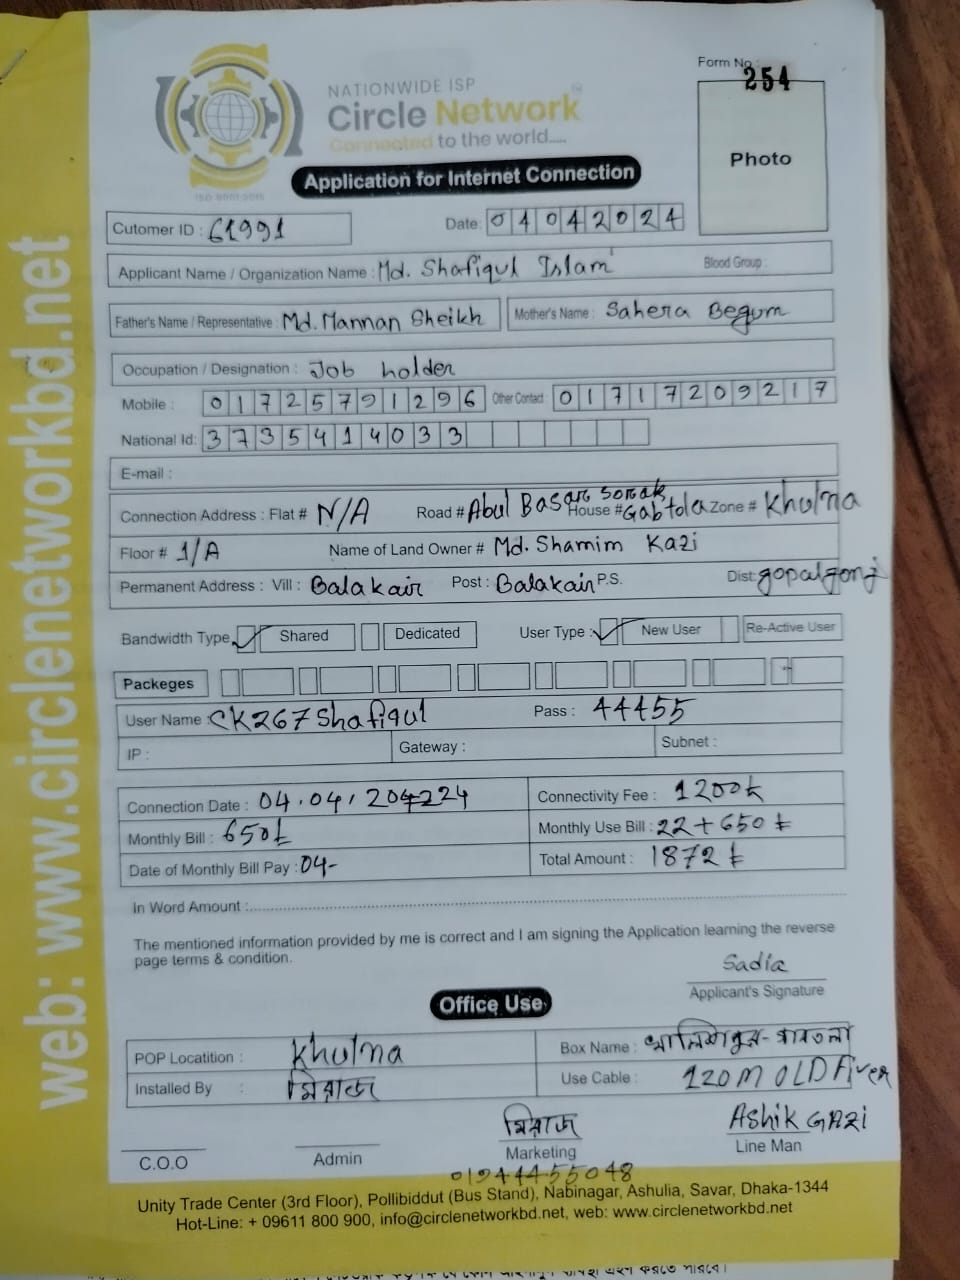 web: www.circlenetworkbd.net
Form No :
254
NATIONWIDE ISP
Circle Network
Connected to the world.....
ISO 9001:2015
Photo
Application for Internet Connection
Cutomer ID : 61991
Date: 04042024
Applicant Name / Organization Name : Md. Shafiqul Islam Blood Group :
Father's Name / Representative : Md. Mannan Sheikh Mother's Name : Sahera Begum
Occupation / Designation : Job holder
Mobile : 01725791296 Other Contact : 01717209217
National Id: 3735414033
E-mail :
Connection Address : Flat # N/A Road # Abul Basar sorak House # Gabtola Zone # Khulna
Floor # 1/A Name of Land Owner # Md. Shamim Kazi
Permanent Address : Vill : Balakair Post : Balakair P.S. Dist: gopalgonj
Bandwidth Type Shared Dedicated User Type : New User Re-Active User
Packeges
User Name : CK267Shafiqul Pass : 44455
IP : Gateway : Subnet :
Connection Date : 04.04, Connectivity Fee : 1200৳
Monthly Bill : 650৳ Monthly Use Bill : 22+650৳
Date of Monthly Bill Pay : 04- Total Amount : 1872৳
In Word Amount :
The mentioned information provided by me is correct and I am signing the Application learning the reverse
page terms & condition.
Sadia
Applicant's Signature
Office Use
POP Locatition : Khulna Box Name :
Installed By : মিরাজ Use Cable : 120M OLD Fiver
মিরাজ Ashik GAZI
C.O.O Admin Marketing Line Man
01944455048
Unity Trade Center (3rd Floor), Pollibiddut (Bus Stand), Nabinagar, Ashulia, Savar, Dhaka-1344
Hot-Line: + 09611 800 900, info@circlenetworkbd.net, web: www.circlenetworkbd.net